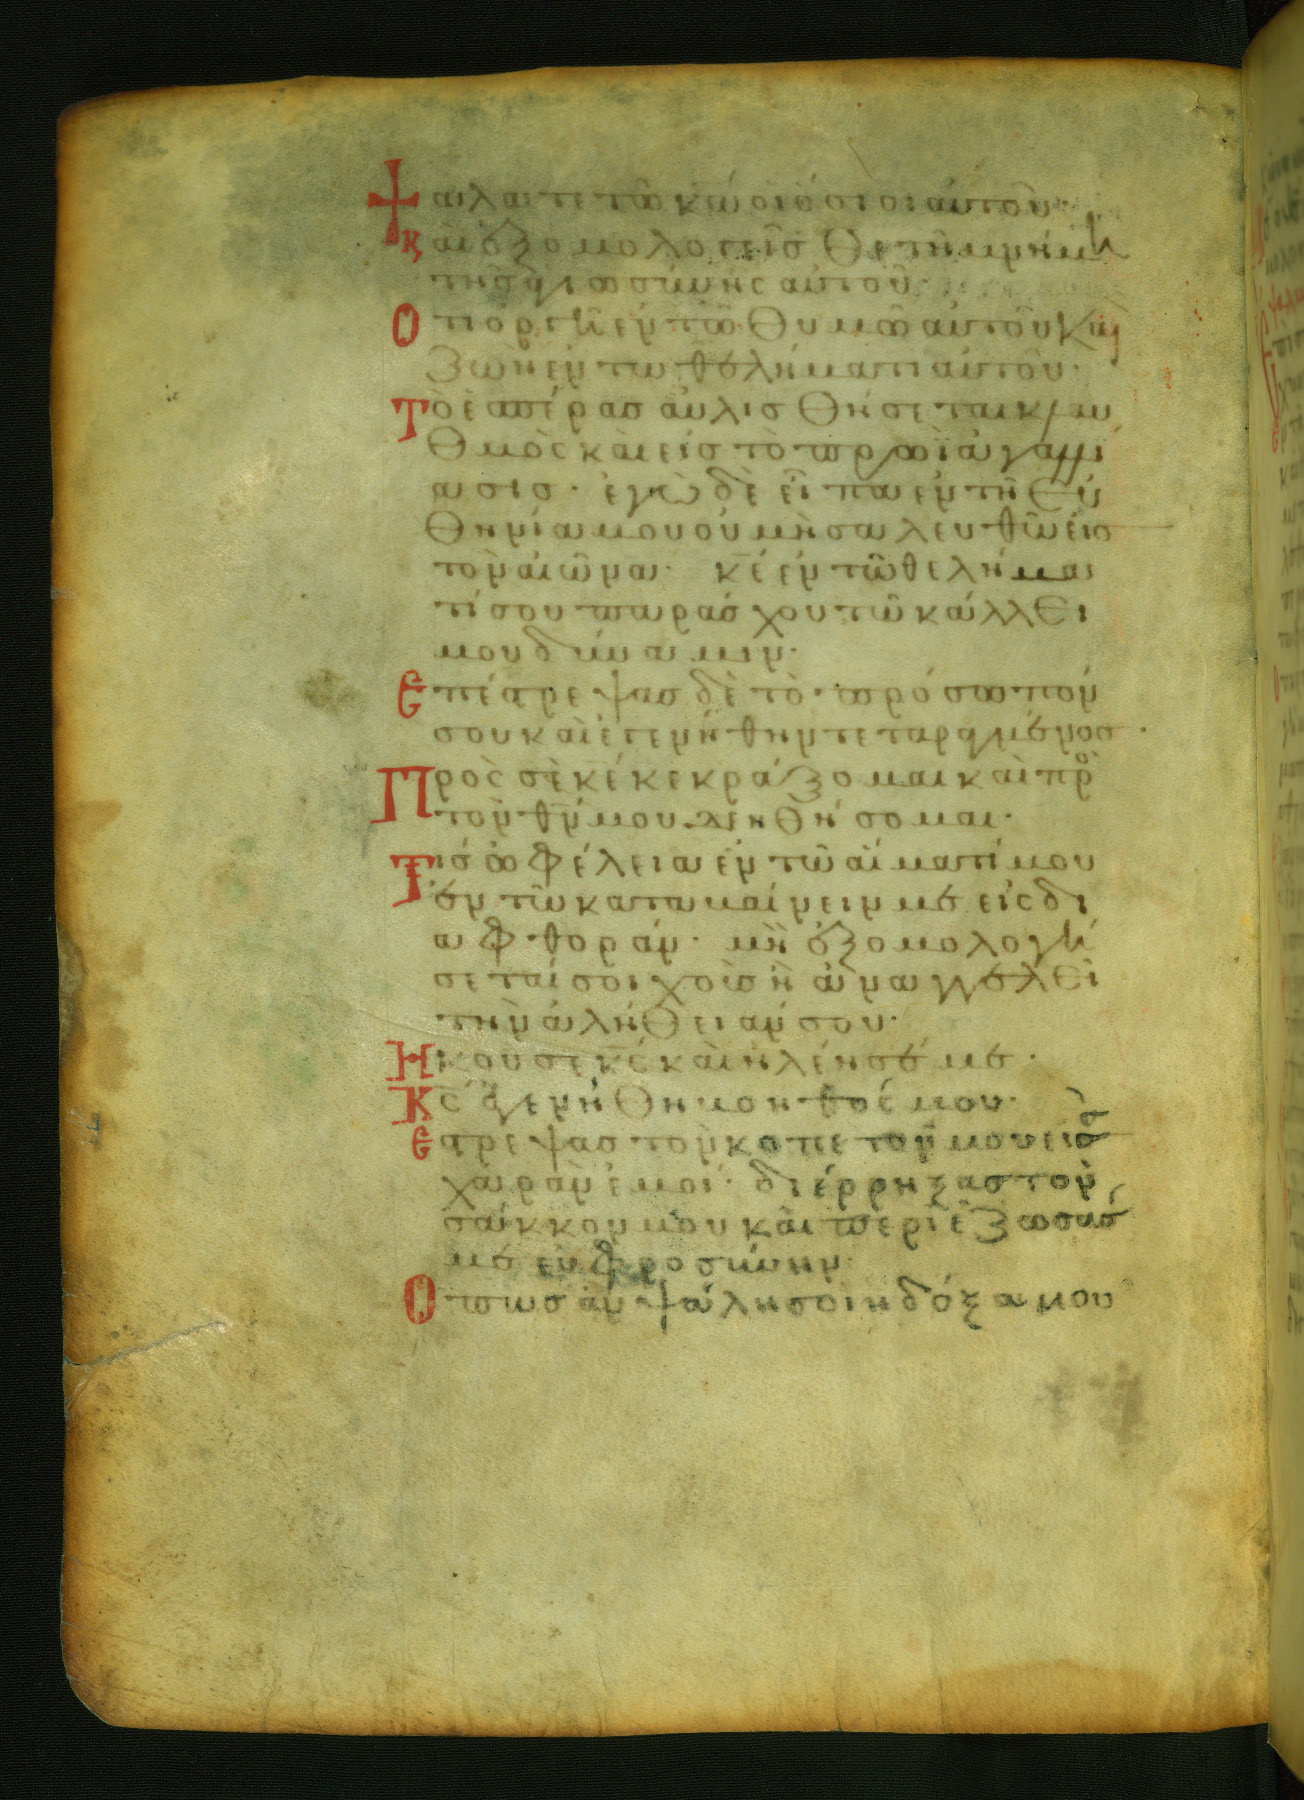 Ψάλατε τῶ κω οἱ ὅσιοι αὐτοῦ·
καὶ ἐξομολογεῖσθε τῆ μνήμη
τῆς ἁγιωσύνης αὐτοῦ·
Ὅτι ὀργὴ ἐν τῶ θυμῶ αὐτοῦ καὶ
ζωὴ ἐν τω θελήματι αὐτοῦ·
Τὸ ἑσπέρας αὐλισθήσεται κλαυ
θμὸς καὶ εἰς τὸ πρωῒ ἀγαλλί
ασις· ἐγὼ δὲ εἶπα ἐν τῆ εὐ
θηνία μου οὐ μὴ σαλευθῶ εἰς
τὸν αἰῶνα· κε ἐν τῶ θελήμα
τί σου παράσχου τῶ κάλλει
μου δύναμιν·
Ἐπέστρεψας δὲ τὸ πρόσωπόν
σου καὶ ἐγενήθην τεταραγμένος·
Πρὸς σὲ κε κεκράξομαι καὶ πρὸ
τὸν θν μου δεηθήσομαι·
Τίς ὠφέλεια ἐν τῶ αἵματί μου
ἐν τῶ καταβαίνειν με εἰς δι
αφθοράν· μὴ ἐξομολογή
σεταί σοι χοῦς ἢ ἀναγγελεῖ
τὴν ἀλήθειάν σου·
Ἤκουσε κς καὶ ἠλέησέ με·
Κς ἐγενήθη μοι βοέ μου·
Ἔστρεψας τὸν κοπετόν μου εἰς
χαρὰν ἐμοί· διέρρηξας τὸν
σάκκον μου καὶ περιέζωσάς
με εὐφροσύνην·
Ὅπως ἂν ψάλη σοι ἡ δόξα μου